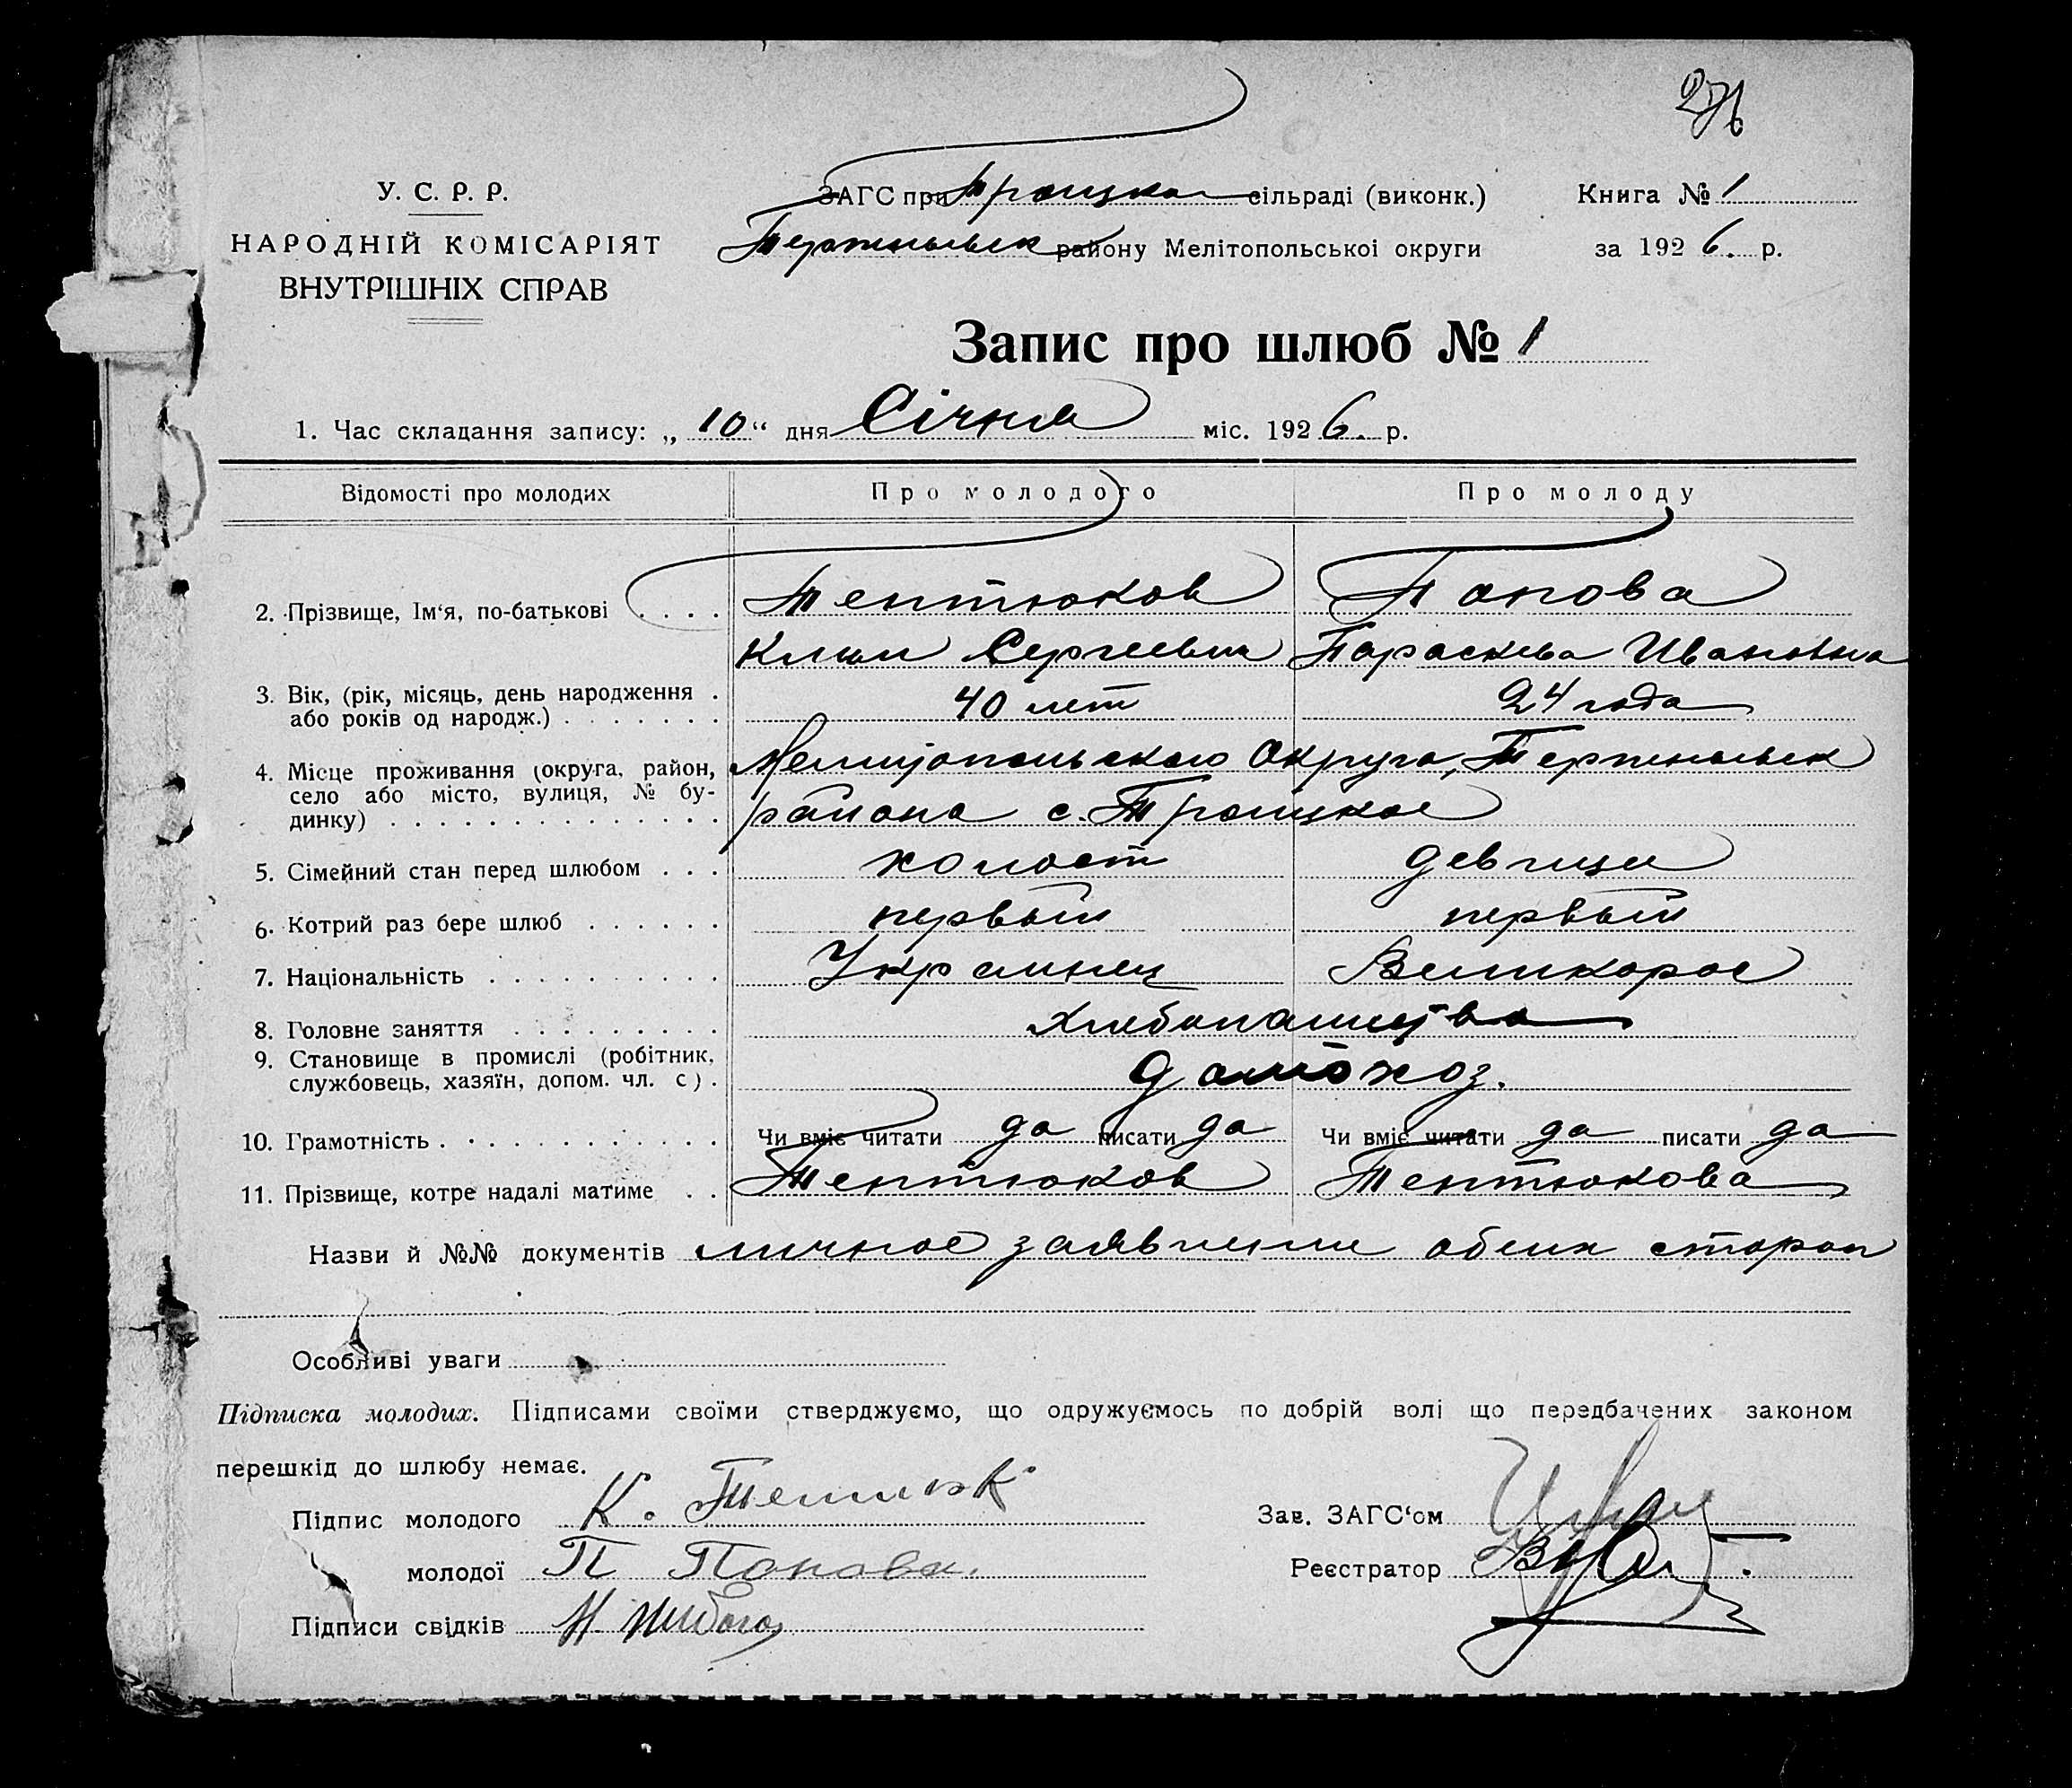 276
У. С. Р. Р.
НАРОДНІЙ КОМІСАРІЯТ
ВНУТРІШНІХ СПРАВ
ЗАГС при Троицко сільраді (виконк.)
Терпеньевск району Мелітопольської округи
Книга № 1
за 1926. р.
Запис про шлюб № 1
1. Час складання запису: „10“ дня Січня міс. 1926. р.
Відомості про молодих Про молодого Про молоду
2. Прізвище, Ім‘я, по-батькові . . . . Тептюков Попова
Клим Сергеевич Параскева Ивановна
3. Вік, (рік, місяць, день народження .
або років од народж.) . . . . . . . 40 лет 24 года
4. Місце проживання (округа, район,
село або місто, вулиця, № бу-
динку) . . . . . . . . . . . . . .
Мелитопольского Округа, Терпеньевск
района с. Троицкое
5. Сімейний стан перед шлюбом . . . холост девица
6. Котрий раз бере шлюб . . . . . . первый первый
7. Національність . . . . . . . . . . Украинец Великорос
8. Головне заняття . . . . . . . . . Хлебопашество
9. Становище в промислі (робітник,
службовець, хазяїн, допом. чл. с) . домохоз.
10. Грамотність . . . . . . . . . . . . Чи вміє читати да писати да Чи вміє читати да писати да
11. Прізвище, котре надалі матиме . . Тептюков Тептюкова
Назви й №№ документів личное заявление обеих сторон
Особливі уваги
Підписка молодих. Підписами своїми стверджуємо, що одружуємось по добрій волі що передбачених законом
перешкід до шлюбу немає.
Підпис молодого К.
молодої П Попова.
Підписи свідків Н.
Зав. ЗАГС‘ом
Реєстратор